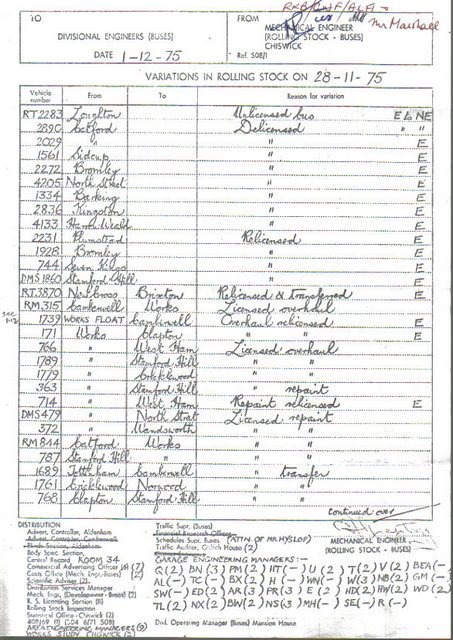 RXB/CWF/ALF
Mr Marshall
TO FROM
DIVISIONAL ENGINEERS (BUSES) MECHANICAL ENGINEER
(ROLLING STOCK - BUSES)
CHISWICK
DATE 1-12-75 Ref. 508/1
VARIATIONS IN ROLLING STOCK ON 28-11-75
Vehicle number From To Reason for variation
RT 2283 Loughton Unlicensed bus E to NE
2890 Catford Delicensed " "
2029 " " E
1561 Sidcup " E
2272 Bromley " E
4205 North Street " E
1334 Barking " E
2836 Kingston " E
4133 Harrow Weald " E
2231 Plumstead Relicensed E
1928 Bromley " E
744 Seven Kings " E
DMS 1860 Stamford Hill " E
RT 3870 New Cross Brixton Relicensed & transferred E
RM 315 Camberwell Works Licensed overhaul
1739 WORKS FLOAT Camberwell Overhaul relicensed E
171 Works Clapton " " E
766 " West Ham Licensed overhaul
1789 " Stamford Hill " "
1779 " Cricklewood " "
363 " Stamford Hill " repaint
714 " West Ham Repaint relicensed E
DMS 479 " North Street Licensed repaint
372 " Wandsworth " "
RM 844 Catford Works " "
787 Stamford Hill " " "
1689 Tottenham Camberwell " transfer
1761 Cricklewood Norwood " "
768 Clapton Stamford Hill " "
continued over
MECHANICAL ENGINEER
(ROLLING STOCK - BUSES)
DISTRIBUTION
Advert. Controller, Aldenham
Body Spec. Section
Central Record ROOM 34
Commercial Advertising Officer (6) (7)
Costs Office (Mech. Engr.-Buses) (2)
Scientific Adviser (2)
Distribution Services Manager
Mech. Engr. (Development - Buses) (2)
R. S. Licensing Section (8)
Rolling Stock Inspection
Statistical Office (2)
AREA ENGINEERING MANAGERS (9)
WORKS STUDY CHISWICK (2)
Traffic Supr. (Buses)
Financial Research Officer
Schedules Supt. (Buses) (ATTN. OF MR HYSLOP)
Traffic Auditor, Griffith House (2)
GARAGE ENGINEERING MANAGERS:-
Divl. Operating Manager (Buses) Mansion House